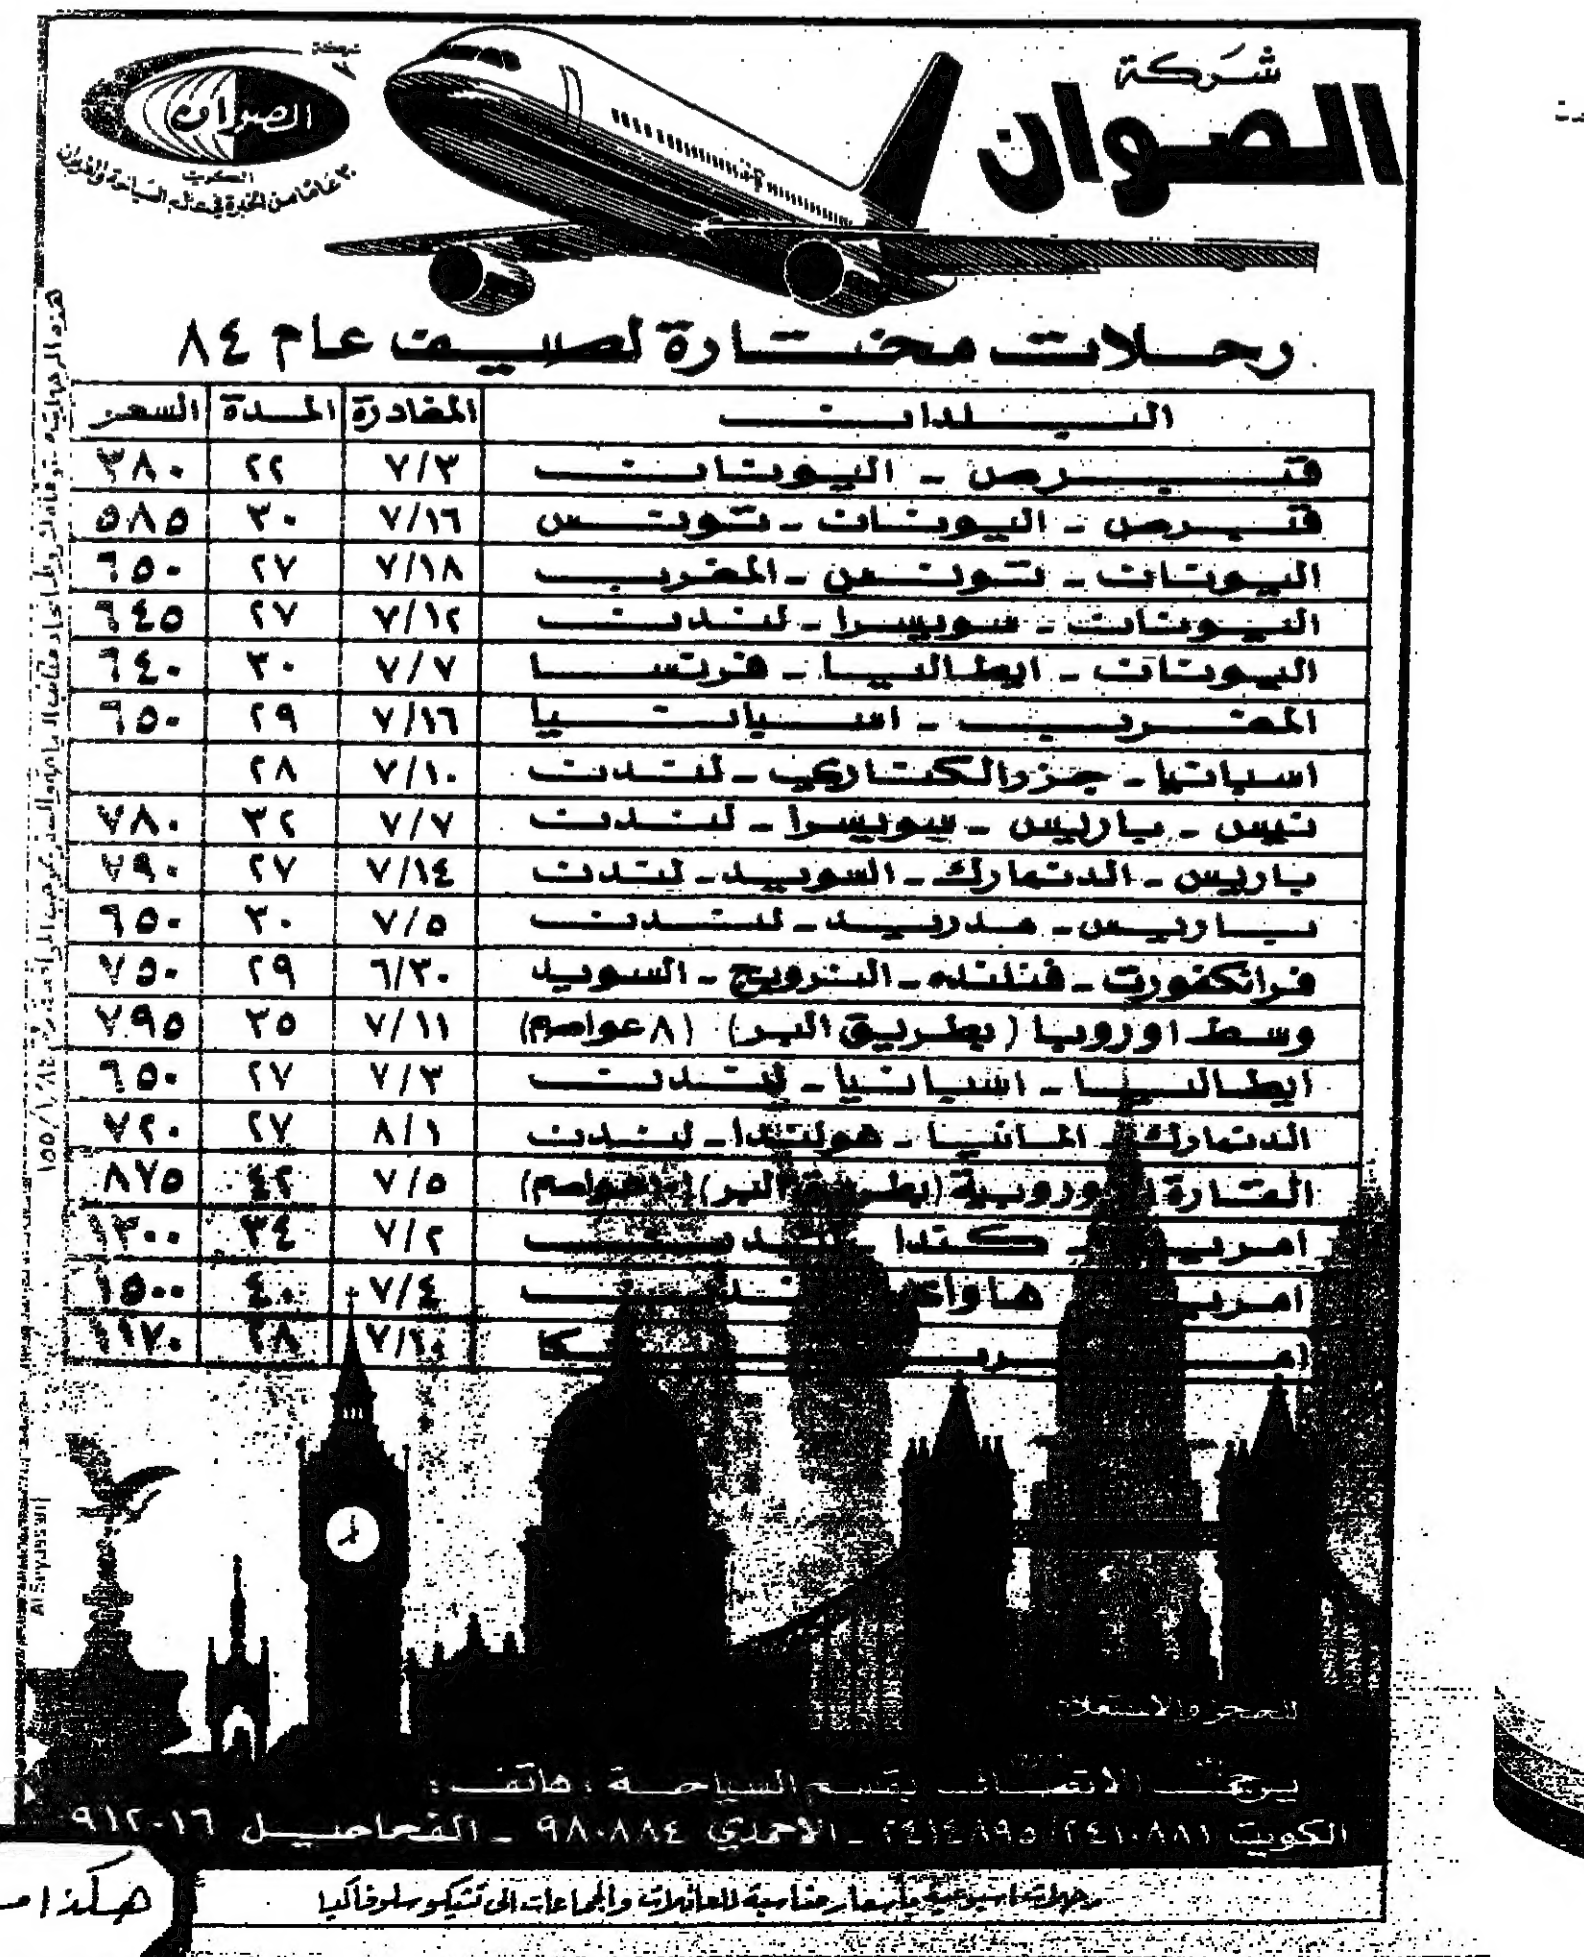 شركة
الصوان
شركة
الصوان
الكويت
٣٠ عاما من الخبرة في عالم السياحة والطيران
رحلات مختارة لصيف عام ٨٤
البلدان المغادرة المدة السعر
قبرص - اليونان ٧/٣ ٢٢ ٣٨٠
قبرص - اليونان - تونس ٧/١٦ ٣٠ ٥٨٥
اليونان - تونس - المغرب ٧/١٨ ٢٧ ٦٥٠
اليونان - سويسرا - لندن ٧/١٢ ٢٧ ٦٤٥
اليونان - ايطاليا - فرنسا ٧/٧ ٣٠ ٦٤٠
المغرب - اسبانيا ٧/١٦ ٢٩ ٦٥٠
اسبانيا - جزر الكناري - لندن ٧/١٠ ٢٨
نيس - باريس - سويسرا - لندن ٧/٧ ٣٢ ٧٨٠
باريس - الدنمارك - السويد - لندن ٧/١٤ ٢٧ ٧٩٠
باريس - مدريد - لندن ٧/٥ ٣٠ ٦٥٠
فرانكفورت - فنلنده - النرويج - السويد ٦/٣٠ ٢٩ ٧٥٠
وسط اوروبا (بطريق البر) (٨ عواصم) ٧/١١ ٢٥ ٧٩٥
ايطاليا - اسبانيا - لندن ٧/٣ ٢٧ ٦٥٠
الدنمارك - المانيا - هولندا - لندن ٨/١ ٢٧ ٧٢٠
القارة الاوروبية (بطريق البر) عواصم) ٧/٥ ٤٢ ٨٧٥
امريكا - كندا - لندن ٧/٢ ٣٤ ١٣٠٠
امريكا - هاواي - لندن ٧/٤ ٤٠ ١٥٠٠
امريكا ٧/١٠ ٢٨ ١١٧٠
Al Seyassah
للحجز والاستعلام
يرجى الاتصال بقسم السياحة ، هاتف :
الكويت ٢٤١٠٨٨١/ ٢٤١٤٨٩٥ - الاحمدي ٩٨٠٨٨٤ - الفحاحيل ٩١٢٠١٦
رحلات اسبوعية بأسعار مناسبة للعائلات والجماعات الى تشيكوسلوفاكيا
هكذا